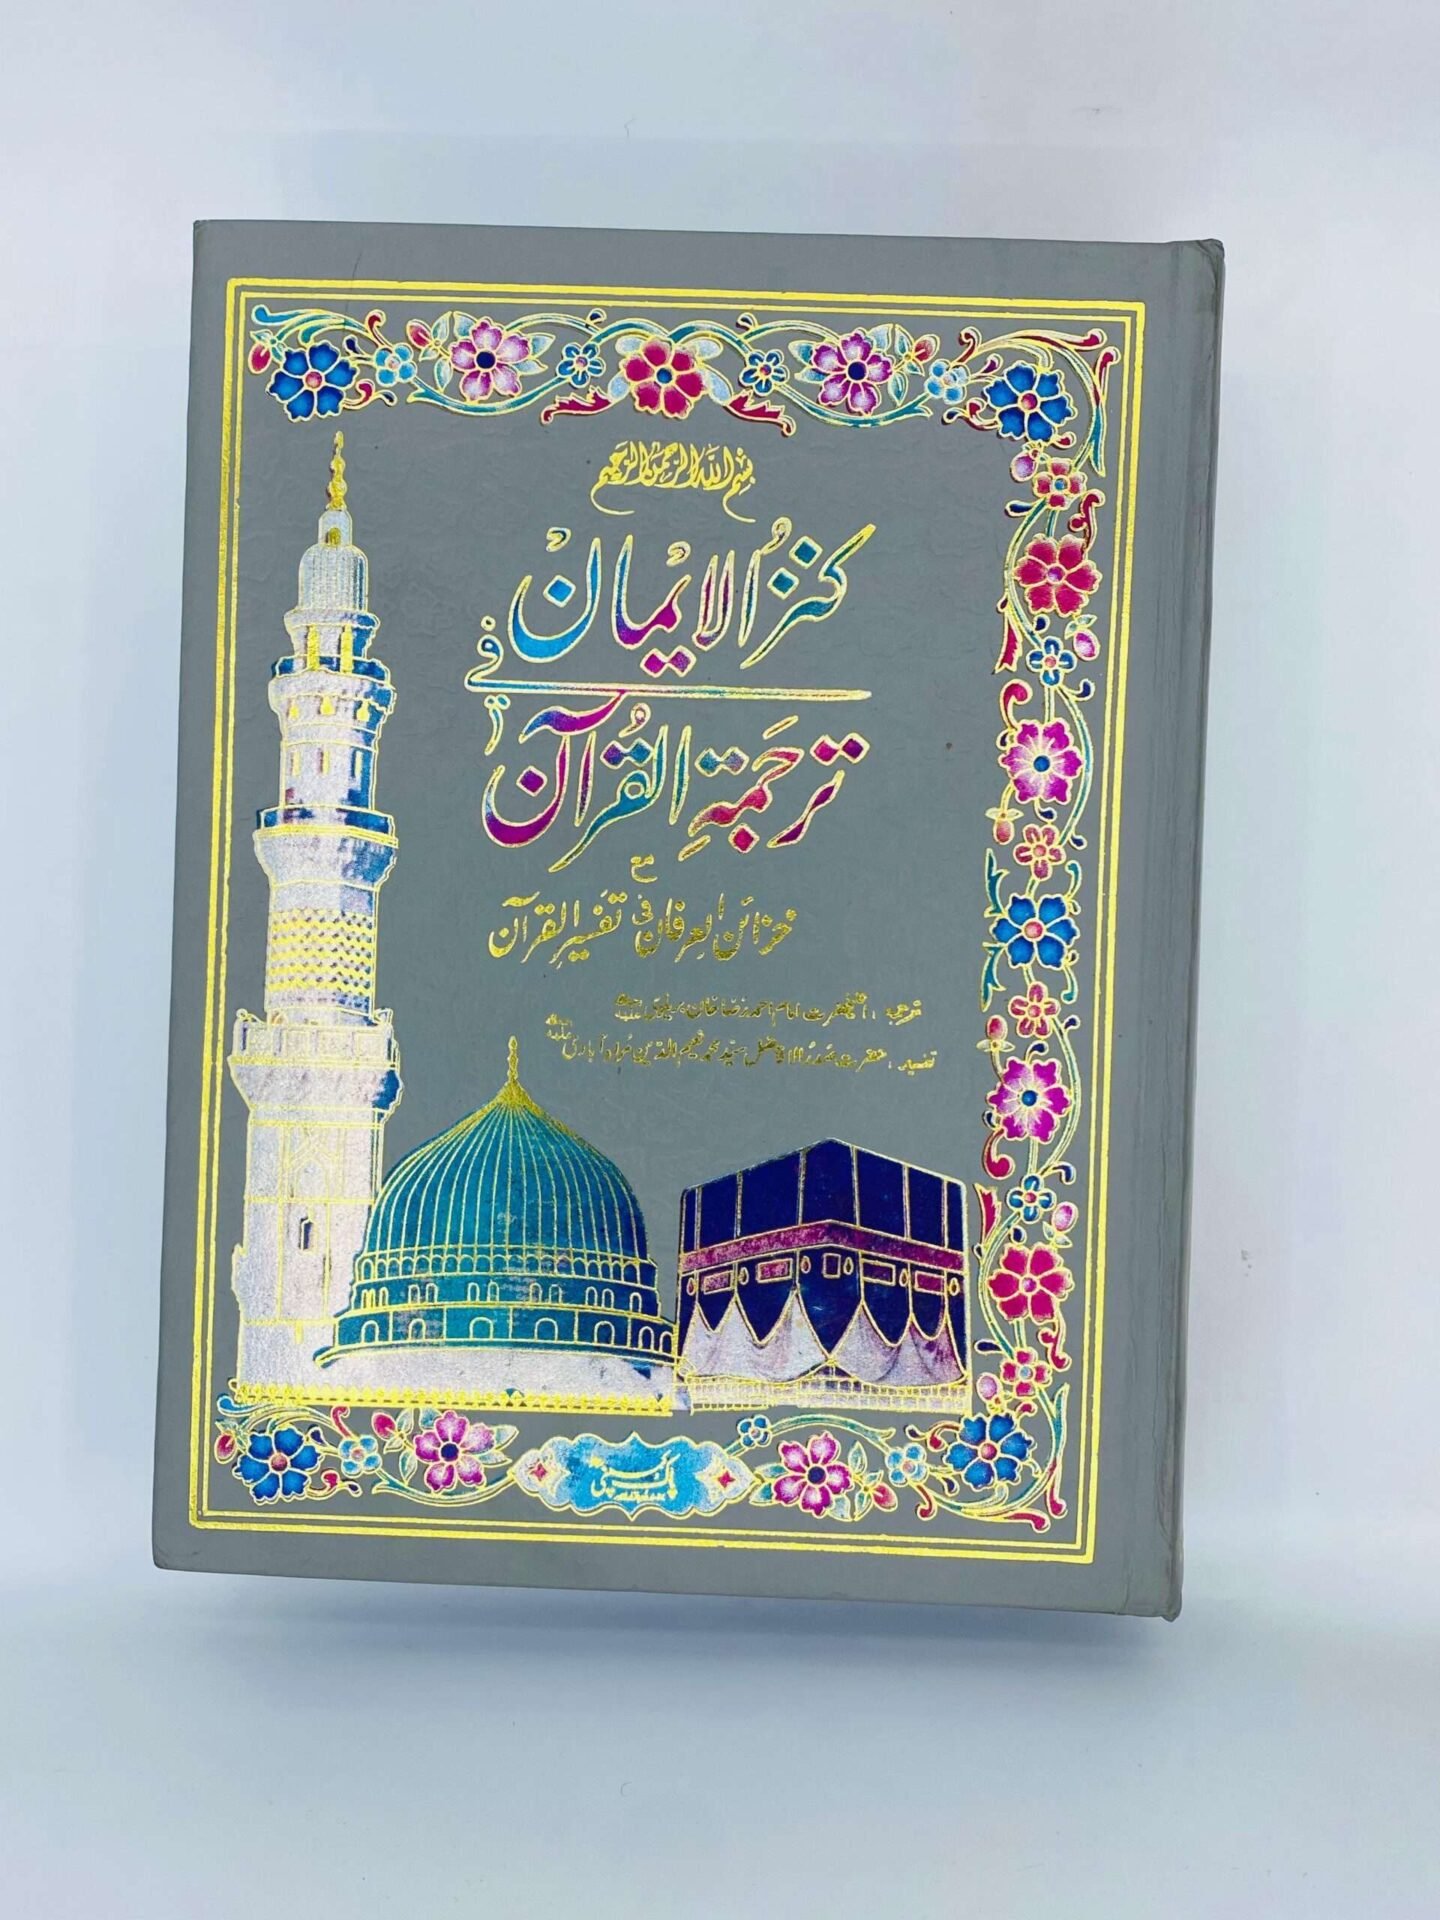 بسم اللہ الرحمن الرحیم
کنزُ الایمان
فی
ترجَمۃِ القُرآن
مع
خزائن العرفان فی تفسیرِ القرآن
ترجمہ : اعلیٰحضرت امام احمد رضا خان بریلوی
تفسیر : حضرت صدرالافاضل سیّد محمد نعیم الدین مراد آبادی
پاک کمپنی